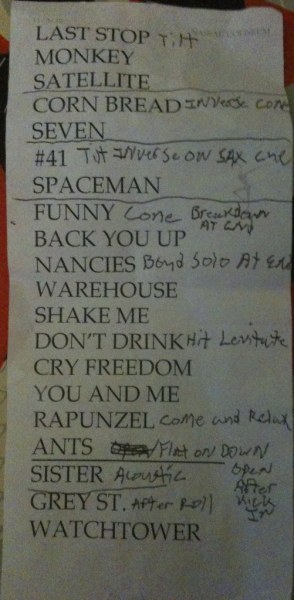 LAST STOP Tilt
MONKEY
SATELLITE
CORN BREAD INVERSE CONE
SEVEN
#41 Tilt INVERSE ON SAX CUE
SPACEMAN
FUNNY Cone Breakdown
AT END
BACK YOU UP
NANCIES Boyd Solo At End
WAREHOUSE
SHAKE ME
DON'T DRINK Hit Levitate
CRY FREEDOM
YOU AND ME
RAPUNZEL Come and Relax
ANTS FLAT ON DOWN
SISTER Acoustic OPEN
After
Kick
IN
GREY ST. After Roll
WATCHTOWER